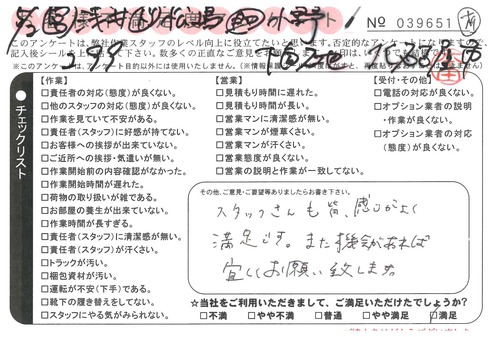 No 039651
このアンケートは、弊社作業スタッフのレベル向上に役立てたいと思います。否定的なアンケートになりますので、
※このアンケートは、アンケート目的以外には使用いたしません。
チェックリスト
【作業】
□責任者の対応(態度)が良くない。
□他のスタッフの対応(態度)が良くない。
□作業を見ていて不安がある。
□責任者(スタッフ)に好感が持てない。
□お客様への挨拶が出来ていない。
□ご近所への挨拶・気遣いが無い。
□作業開始前の内容確認がなかった。
□作業開始時間が遅れた。
□荷物の取り扱いが雑である。
□お部屋の養生が出来ていない。
□作業時間が長すぎる。
□責任者(スタッフ)に清潔感が無い。
□責任者(スタッフ)が汗くさい。
□トラックが汚い。
□梱包資材が汚い。
□運転が不安(下手)である。
□靴下の履き替えをしてない。
□スタッフにやる気がみられない。
【営業】
□見積もり時間に遅れた。
□見積もり時間が長い。
□営業マンに清潔感が無い。
□営業マンが煙草くさい。
□営業マンが汗くさい。
□営業態度が良くない。
□営業の説明と作業が一致してない。
【受付・その他】
□電話の対応が良くない。
□オプション業者の説明
・作業が良くない。
□オプション業者の対応
(態度)が良くない。
その他、ご意見・ご要望等ありましたらお書き下さい。
スタッフさんも皆、感じがよく
満足です。また機会があれば
宜しくお願い致します。
☆当社をご利用いただきまして、ご満足いただけたでしょうか?
□不満 □やや不満 □普通 □やや満足 ☑満足